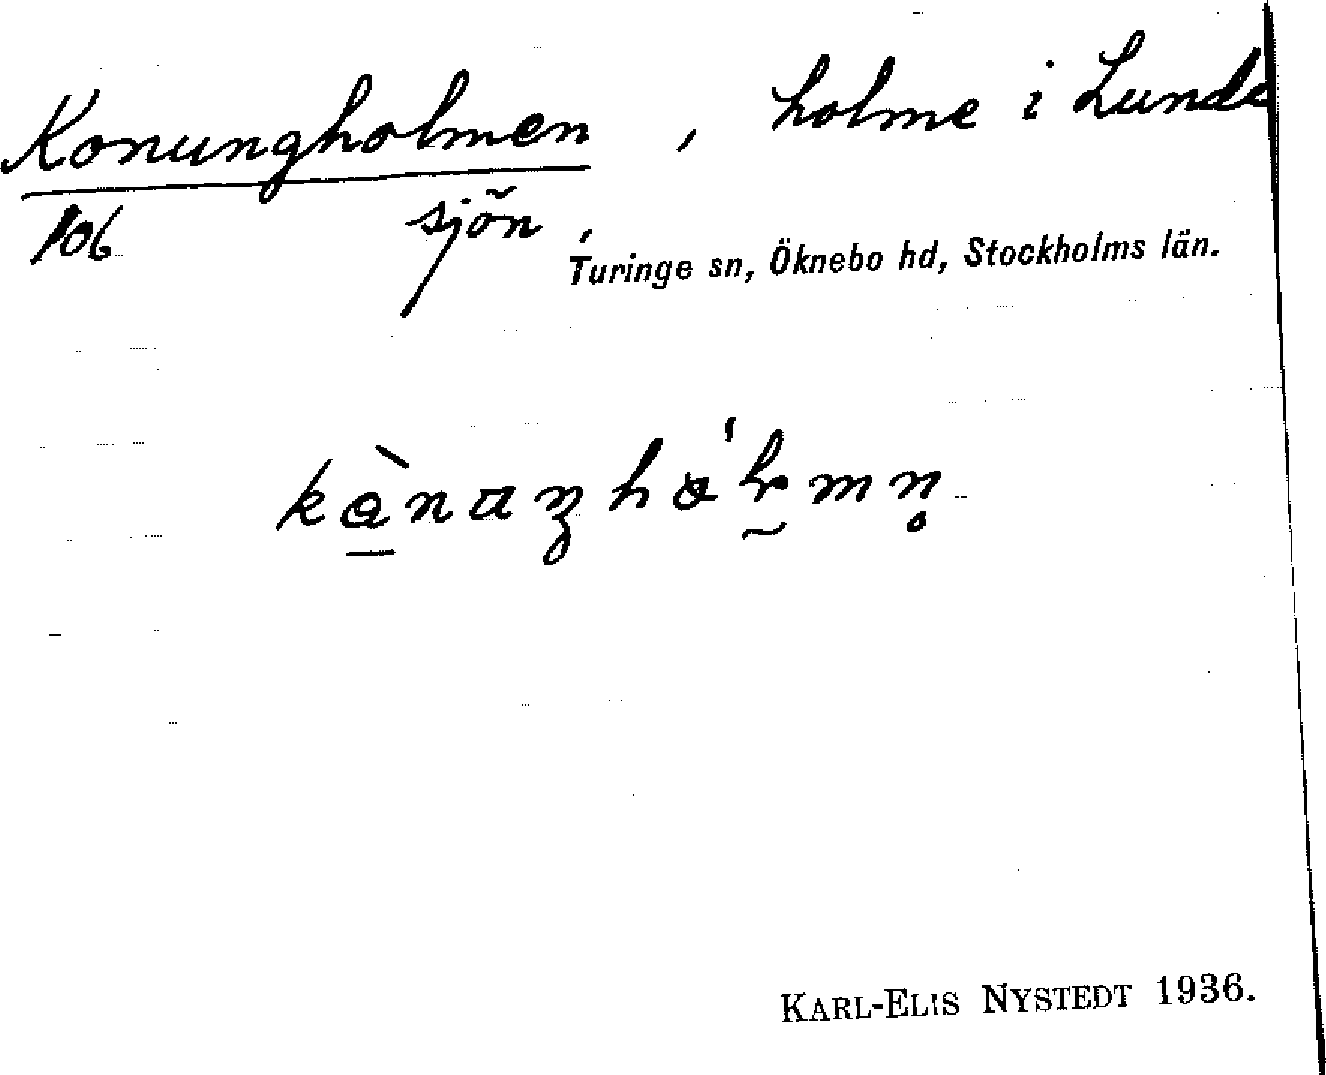 Konungholmen, holme i Lunda
106 sjön,
Turinge sn, Öknebo hd, Stockholms län.
KARL-ELIS NYSTEDT 1936.